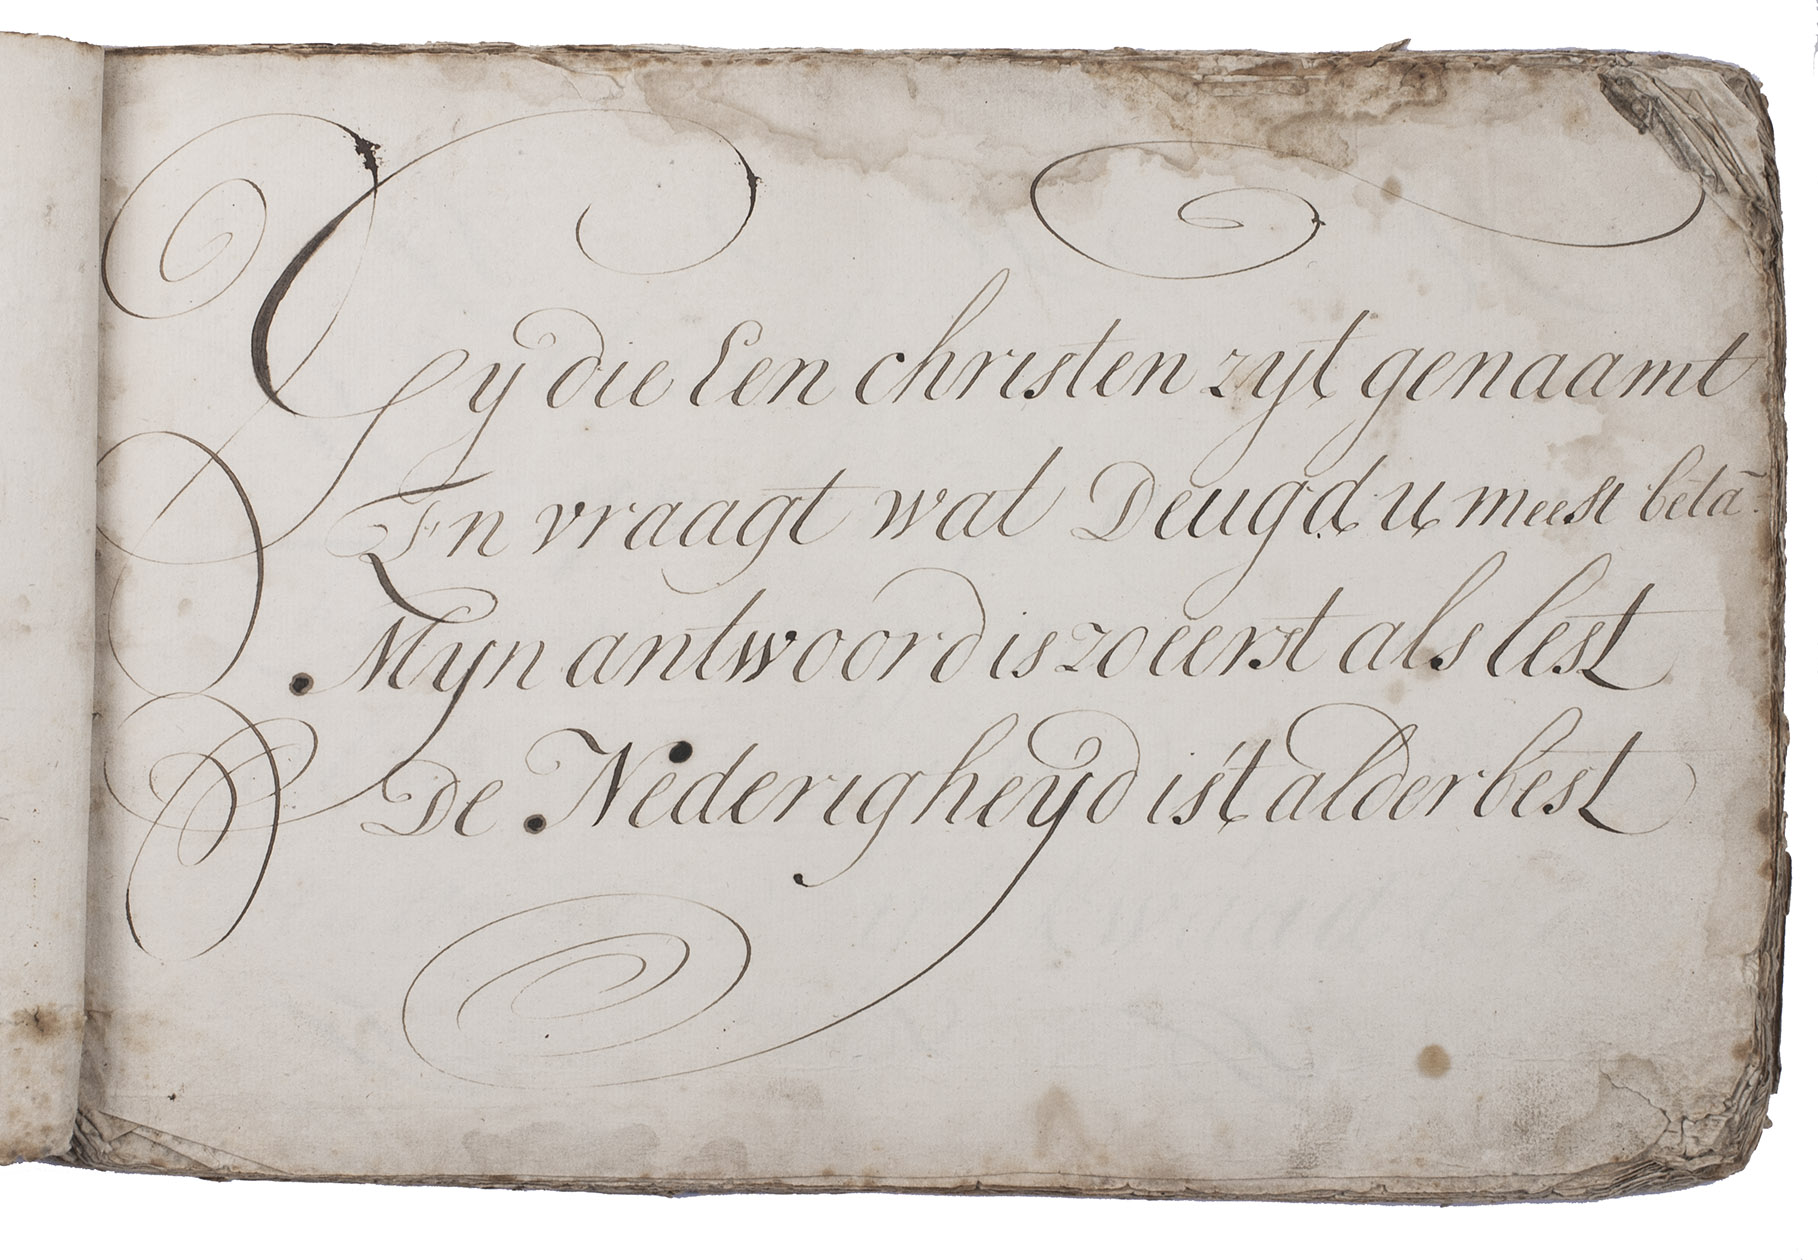 Gy die Een christen zyt genaamt
En vraagt wat Deugd u meest betā.
Myn antwoord is zo eerst als lest
De Nederigheyd is't alderbest